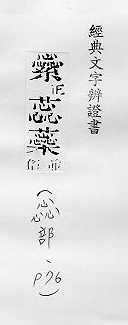 經典文字辨證書
繠正蕊蘂並俗
（惢部、